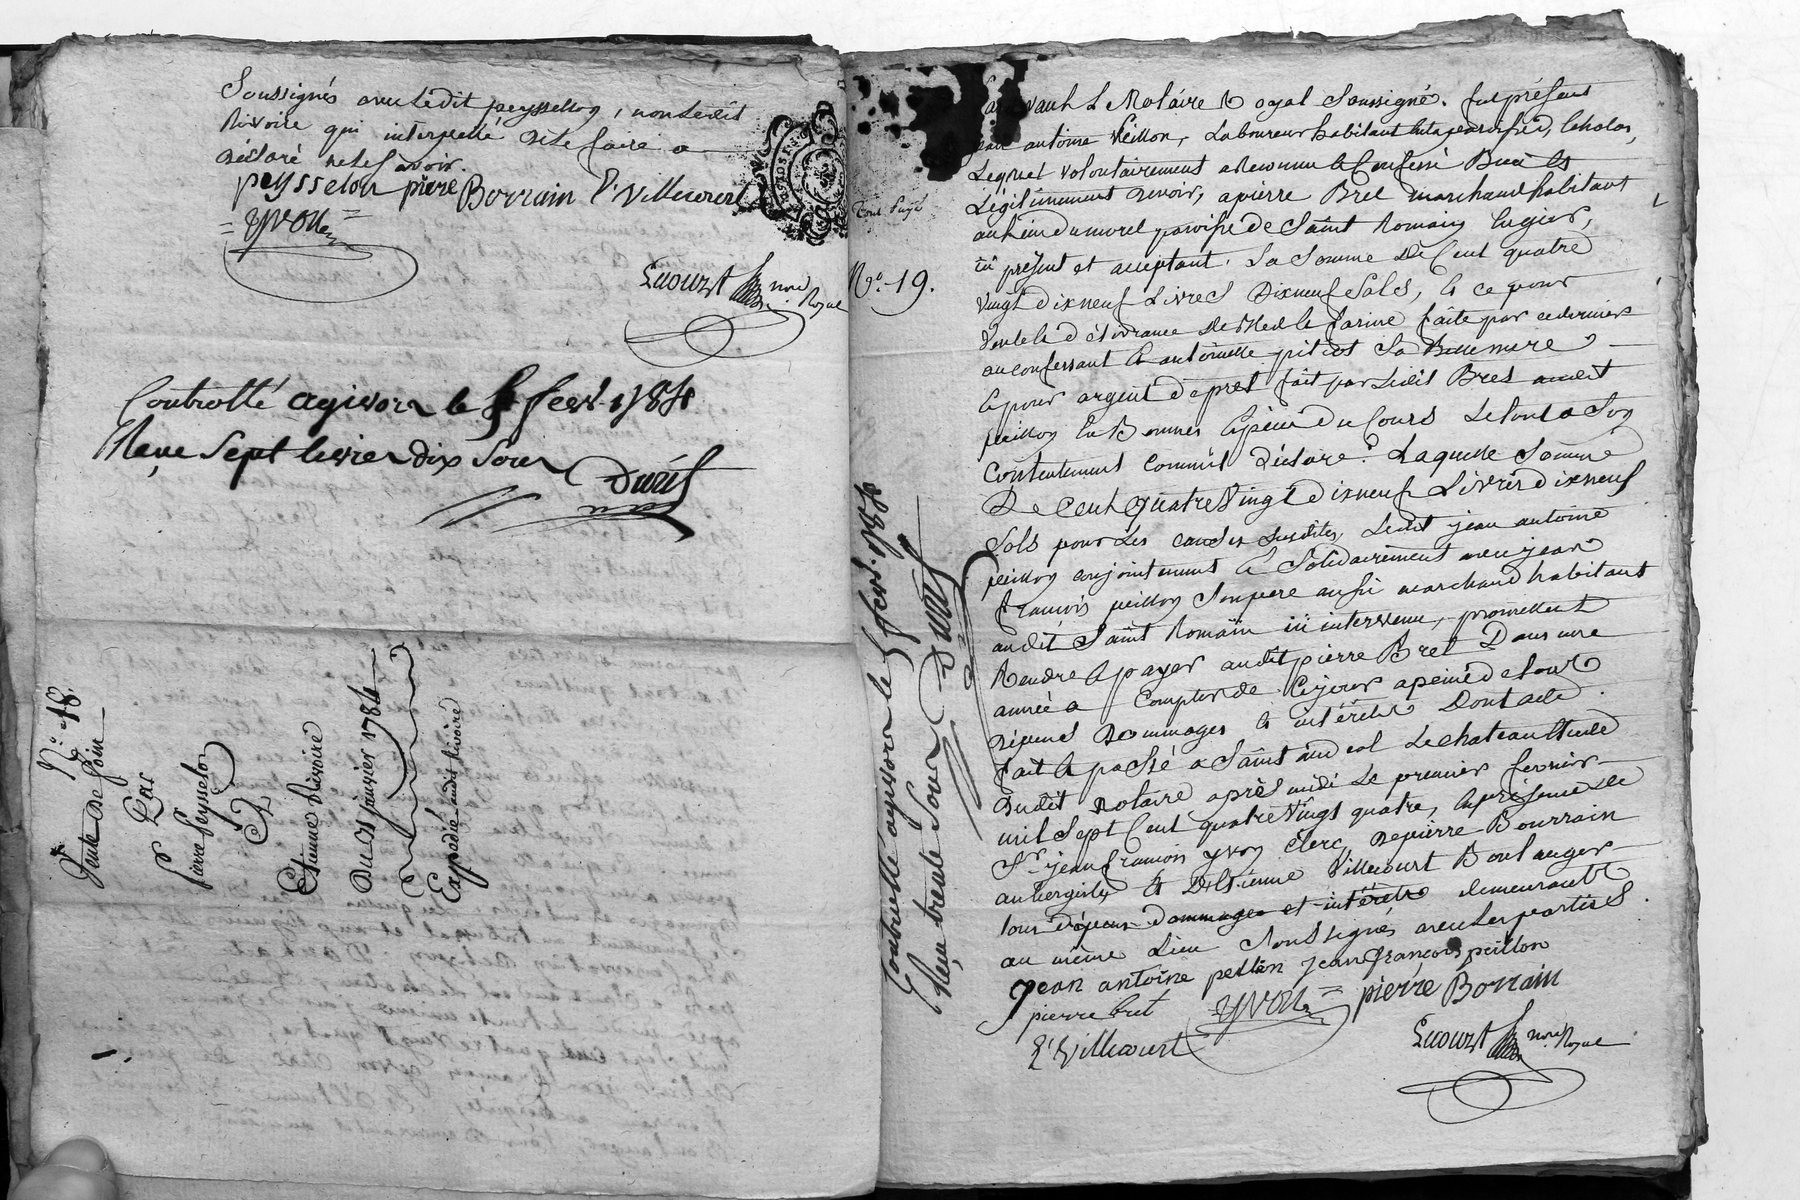 Soussignés avec ledit peyssellon, non ledit
Rivoire qui interpellé de le faire a
déclaré ne le savoir.
peysselon pierre Borrain E Villecourt
= yvon =
Lacourt nore Royal
Controllé a givors le 5 fevr. 1784
Reçu sept livres dix sous
Durif
N.o 18.
Vente de foin
Par
Pierre Peysselon
A
Etienne Rivoire
Du 31 janvier 1784
Expédié audit Rivoire
N.o 19.
Controllé a givors le 5 fevr. 1784
Reçu trente sous Durif
Pardevant le Notaire Royal Soussigné. fut présent
jean antoine Peillon, Laboureur habitant
Lequel volontairement a reconnu et Confessé
Légitimement devoir, a pierre Bret marchand habitant
au lieu du morel paroisse de Saint Romain
ici présent et acceptant. La Somme De Cent quatre
vingt dixneuf Livres Dixneuf Sols, et ce pour
vente et délivrance de Bled et farine faite par ce dernier
au confessant et antoinette pitiot sa Belle mere
et pour argent de prest fait par Ledit Bret audit
peillon En Bonnes Espèces du Cours Le tout a Son
Contentement comm'il déclare. Laquelle Somme
De Cent quatre Vingt dixneuf Livres dixneuf
Sols pour Les causes susdites, Ledit jean antoine
peillon conjointement et Solidairement avec jean
françois peillon Son pere aussi marchand habitant
audit Saint Romain ici intervenu, promettent
Rendre et payer audit pierre Bret Dans une
année a Compter de Cejour a peine de tous
dépens Dommages et intérêts Dont acte
fait et passé a Saint andéol Le chateau Etude
dudit Notaire après midi Le premier fevrier
mil Sept Cent quatre Vingt quatre, En présence de
Sr. jean françois yvon Clerc, De pierre Bourrain
aubergiste et D'Etienne Villecourt Boulanger
tous dépens dommages et intérêts demeurant
au même Lieu Soussignés avec Les parties
jean antoine pellon jean françois peillon
pierre bret = yvon = pierre Borrain
E Villecourt
Lacourt nore Royal